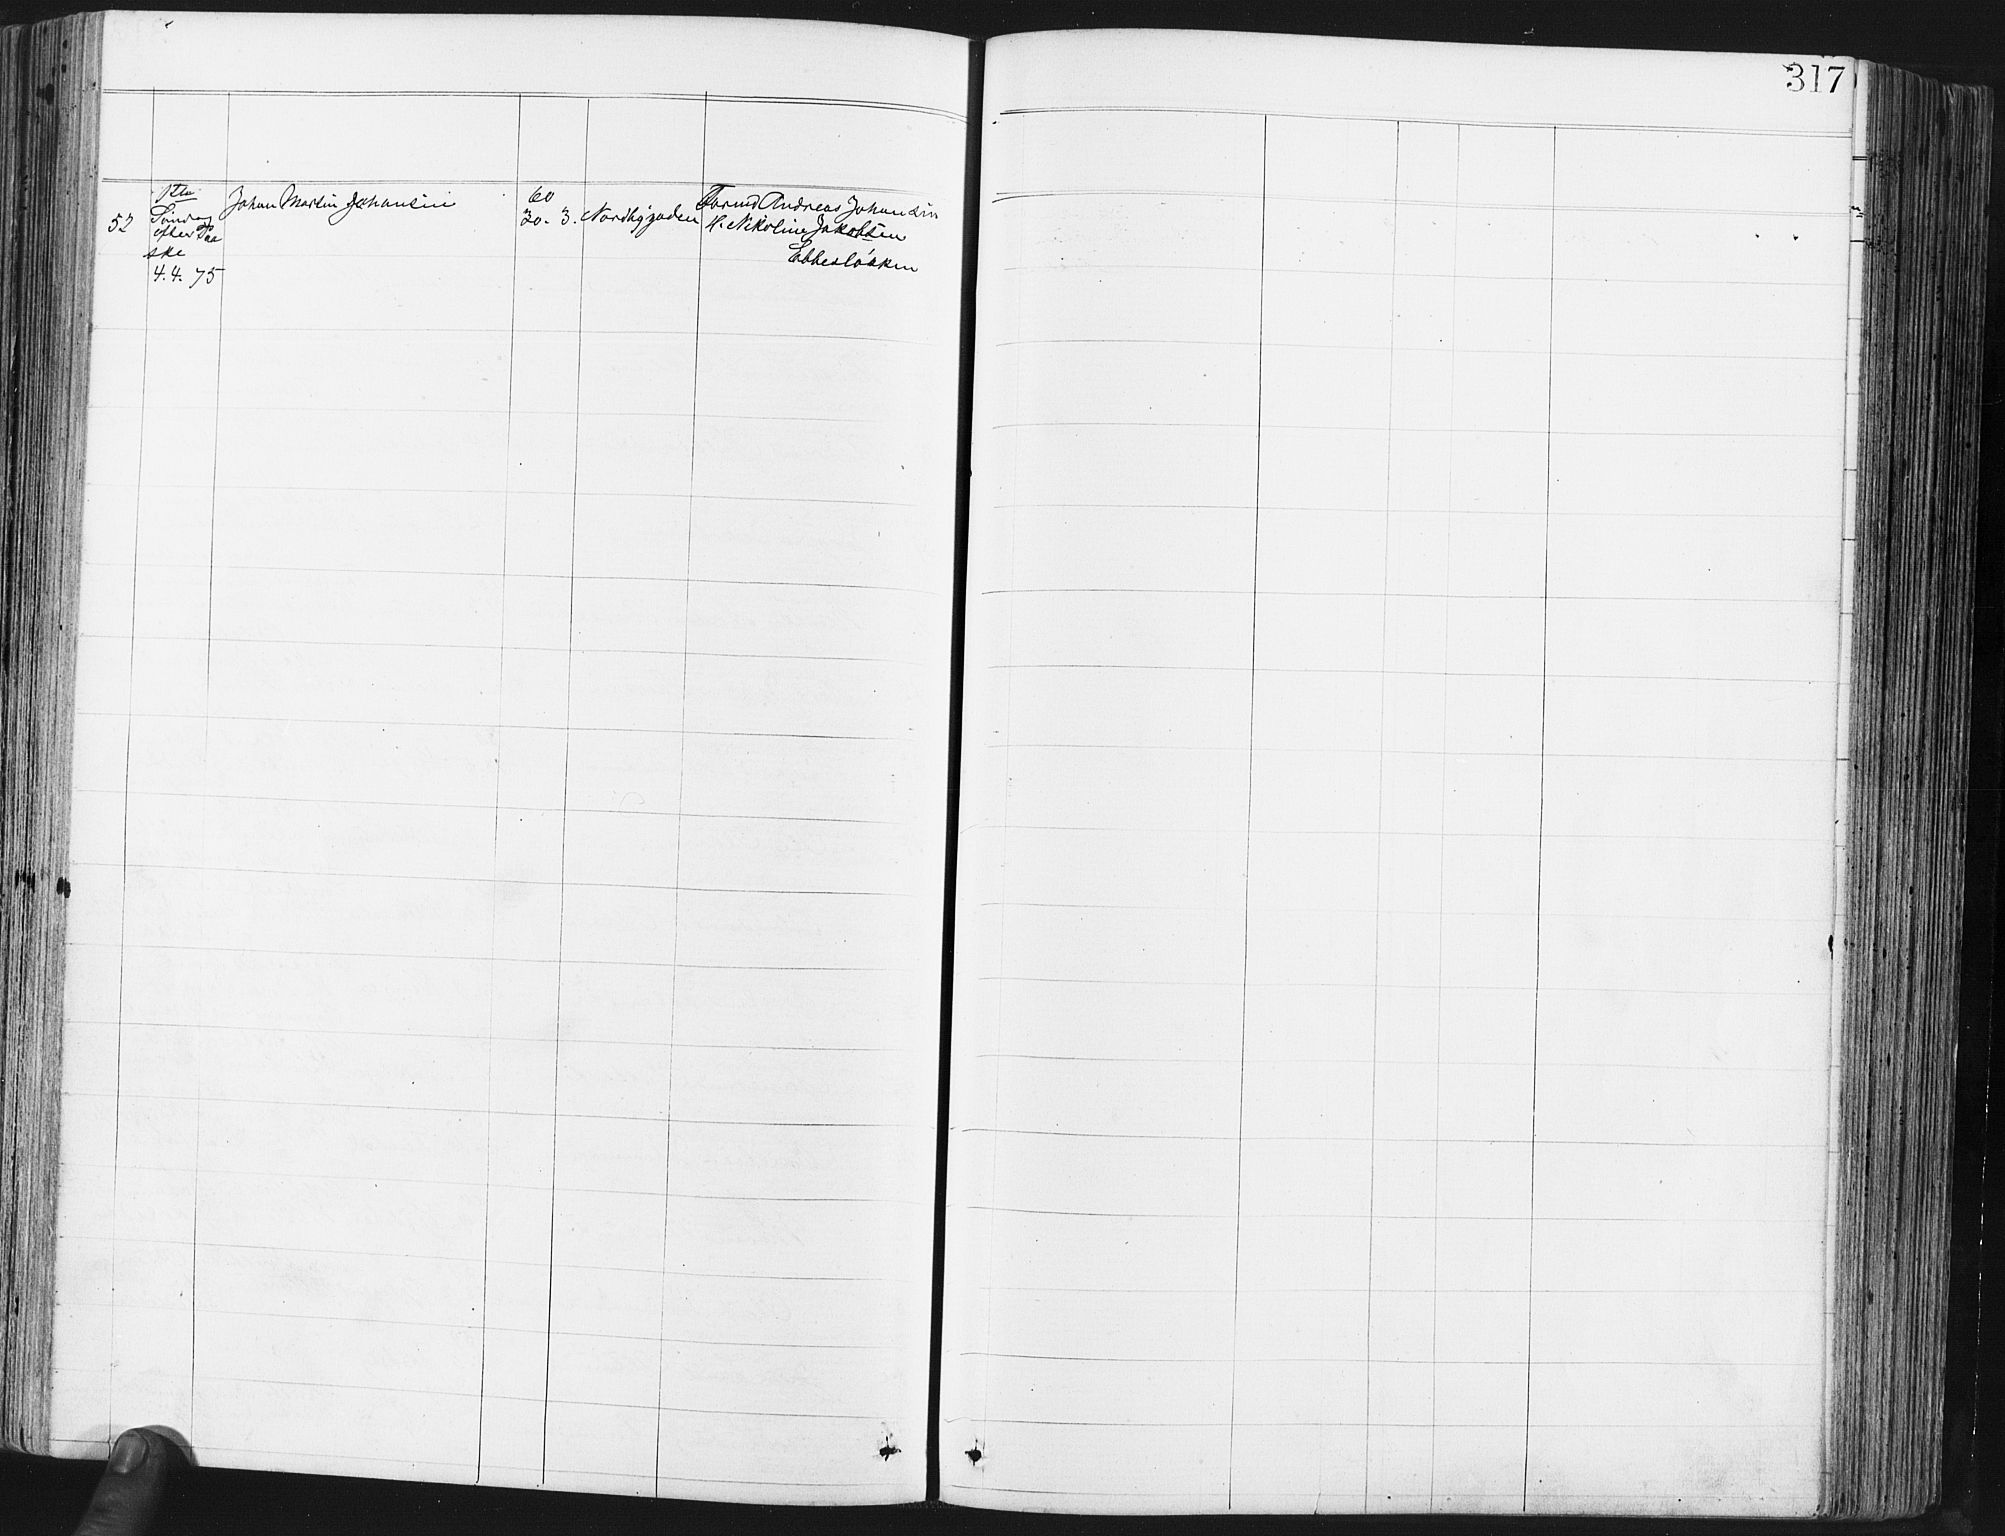 317
1ste
Søndag
52 efter Paa
ske
4.4. 75
Johan Martin Johansen
60
30. 3.
Nordbygaden
Andreas Johansen
H. Nikoline Jakobsen
Ebbesløkken